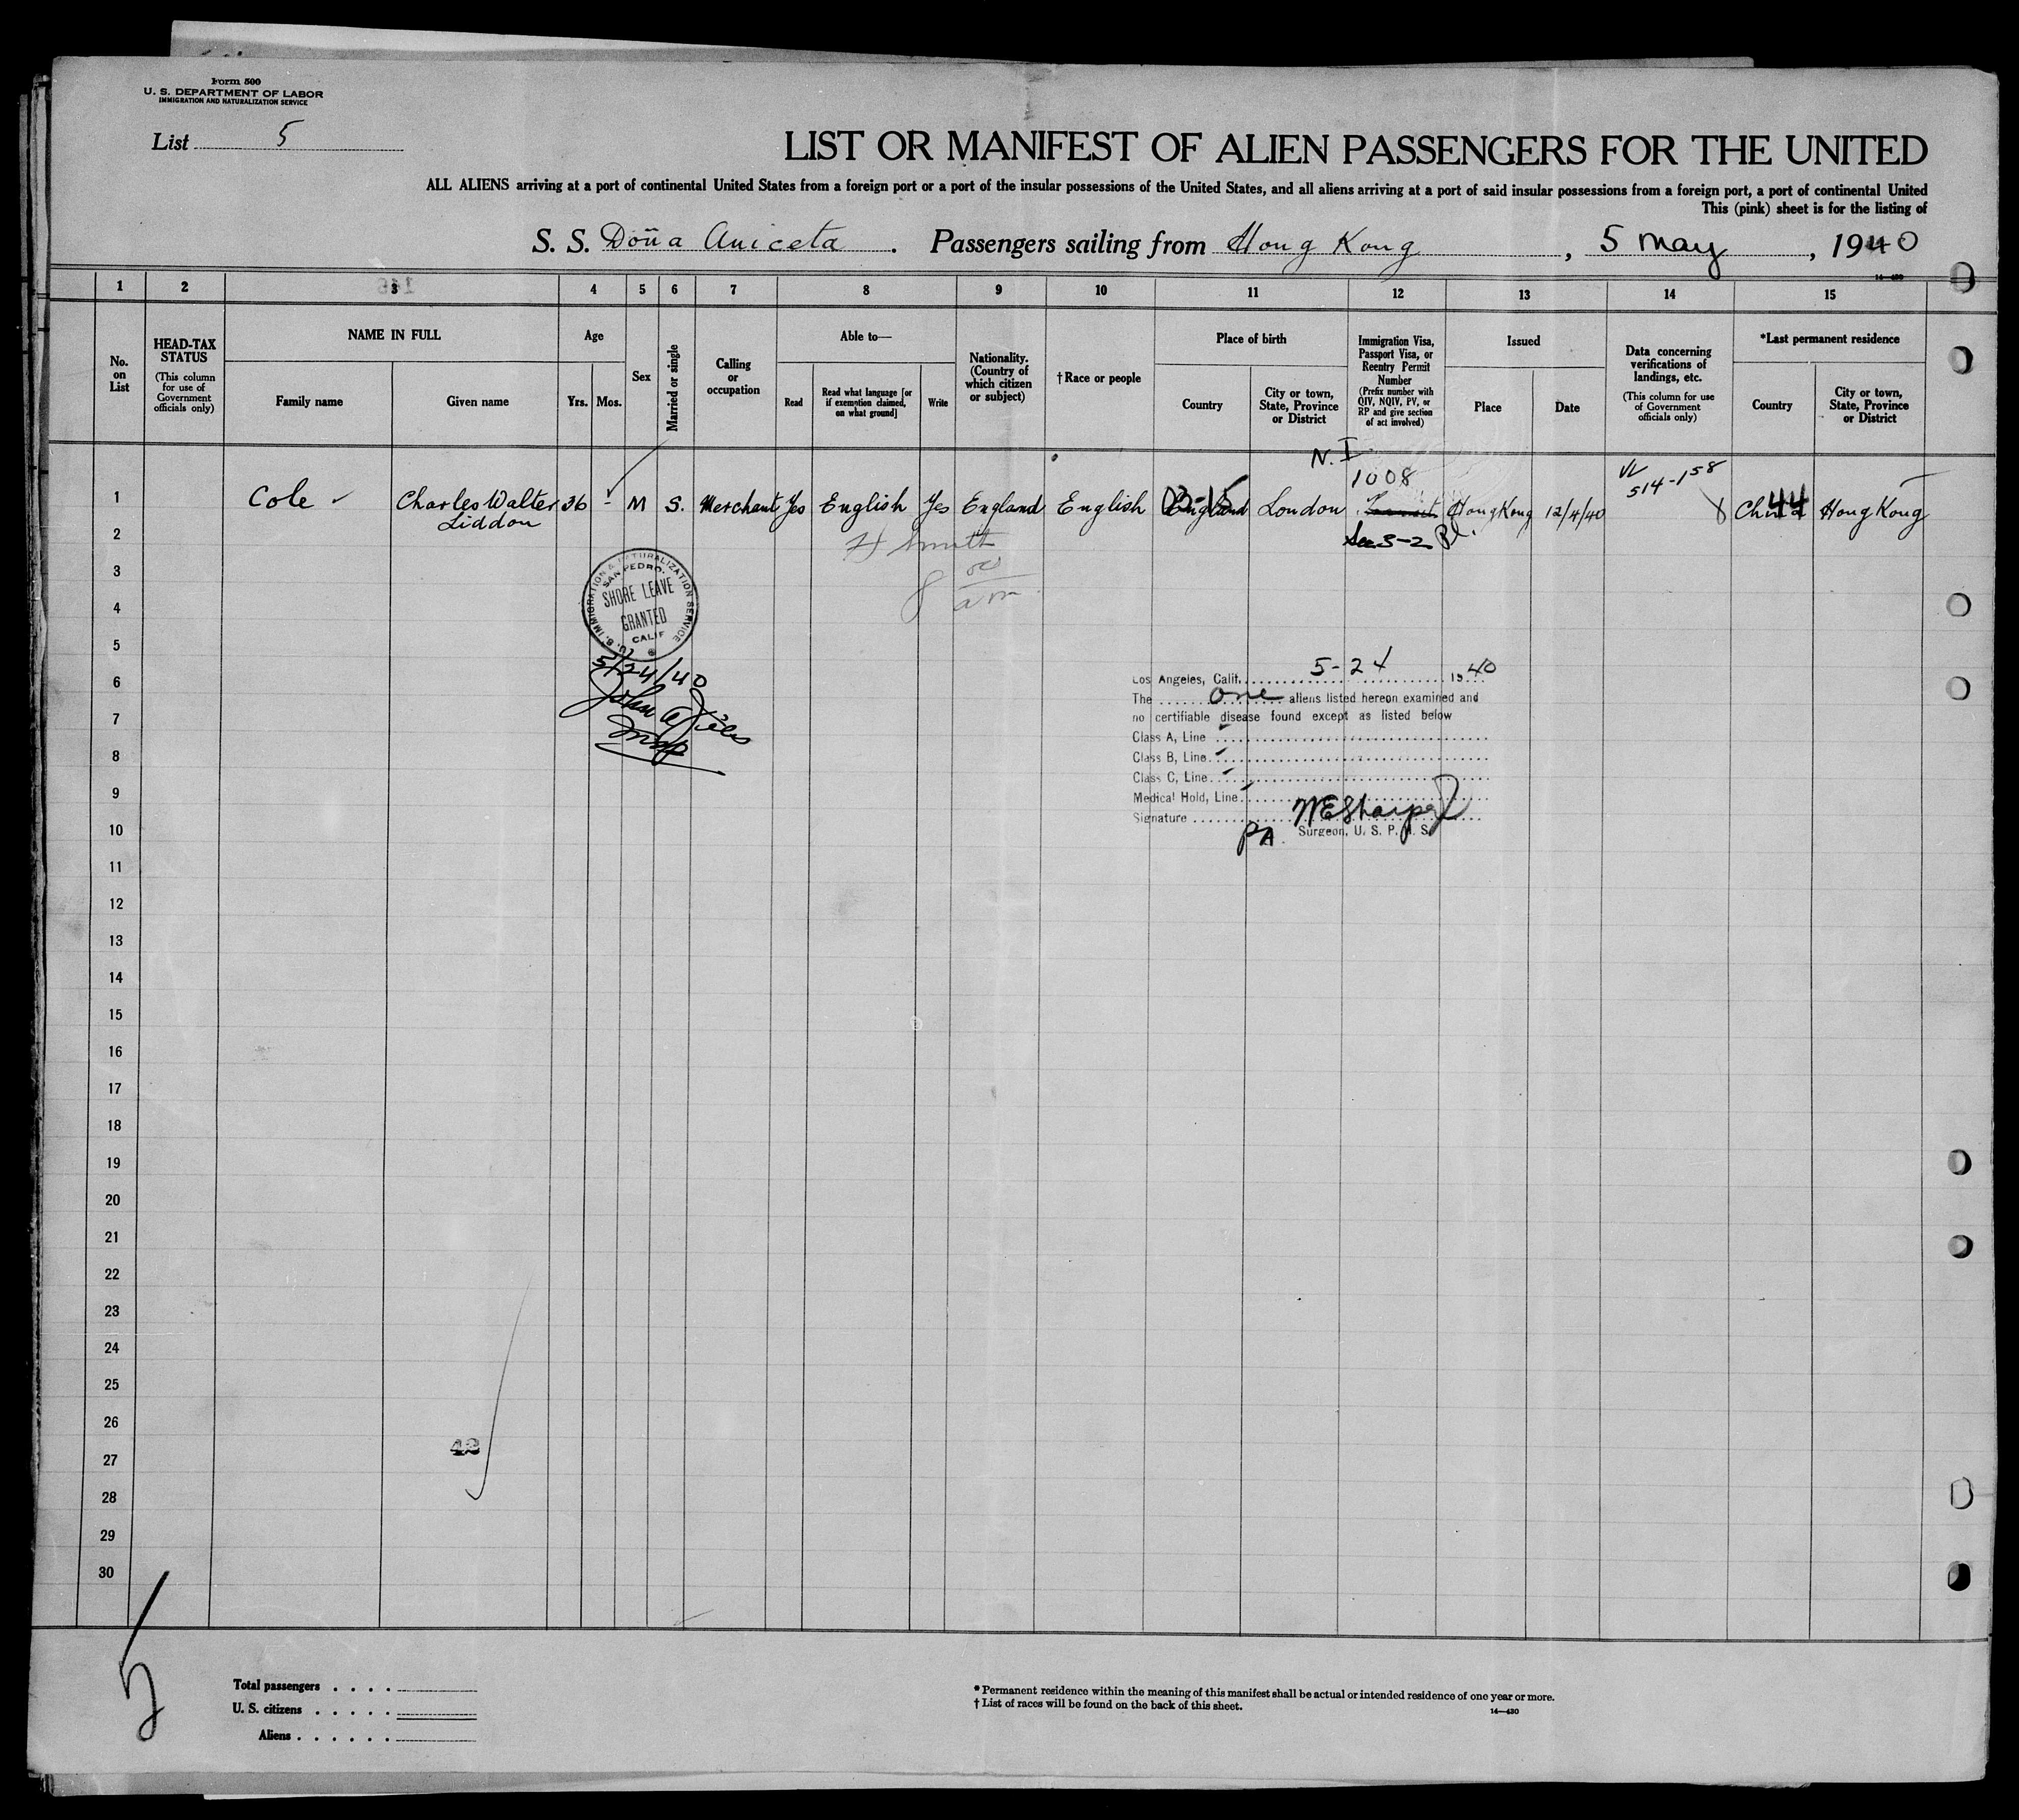 Form 500
U. S. DEPARTMENT OF LABOR
IMMIGRATION AND NATURALIZATION SERVICE
List 5
LIST OR MANIFEST OF ALIEN PASSENGERS FOR THE UNITED
ALL ALIENS arriving at a port of continental United States from a foreign port or a port of the insular possessions of the United States, and all aliens arriving at a port of said insular possessions from a foreign port, a port of continental United
This (pink) sheet is for the listing of
S. S. Doña Aniceta . Passengers sailing from Hong Kong , 5 May , 1940
14-430
1 2 3 4 5 6 7 8 9 10 11 12 13 14 15
No. on List
HEAD-TAX STATUS
(This column for use of Government officials only)
NAME IN FULL
Family name
Given name
Age
Yrs.
Mos.
Sex
Married or single
Calling or occupation
Able to—
Read
Read what language [or if exemption claimed, on what ground]
Write
Nationality. (Country of which citizen or subject)
†Race or people
Place of birth
Country
City or town, State, Province or District
Immigration Visa, Passport Visa, or Reentry Permit Number
(Prefix number with QIV, NQIV, PV, or RP and give section of act involved)
Issued
Place
Date
Data concerning verifications of landings, etc.
(This column for use of Government officials only)
*Last permanent residence
Country
City or town, State, Province or District
N. I.
1008
514-158
1 Cole Charles Walter 36 - M S. Merchant Yes English Yes England English England London Transit Hong Kong 12/4/40 China 44 Hong Kong
Liddon
Sec 3-2
2
3
4
5
6
7
8
9
10
11
12
13
14
15
16
17
18
19
20
21
22
23
24
25
26
27
28
29
30
H Smith
8 00 am
U. S. IMMIGRATION & NATURALIZATION SERVICE
SAN PEDRO,
SHORE LEAVE
GRANTED
CALIF
5/24/40
Insp
Los Angeles, Calif. 5-24 1940
The one aliens listed hereon examined and
no certifiable disease found except as listed below
Class A, Line
Class B, Line
Class C, Line
Medical Hold, Line
Signature WESharp
PA Surgeon, U. S. P. H. S.
42
5
Total passengers
U. S. citizens
Aliens
* Permanent residence within the meaning of this manifest shall be actual or intended residence of one year or more.
† List of races will be found on the back of this sheet.
14—430